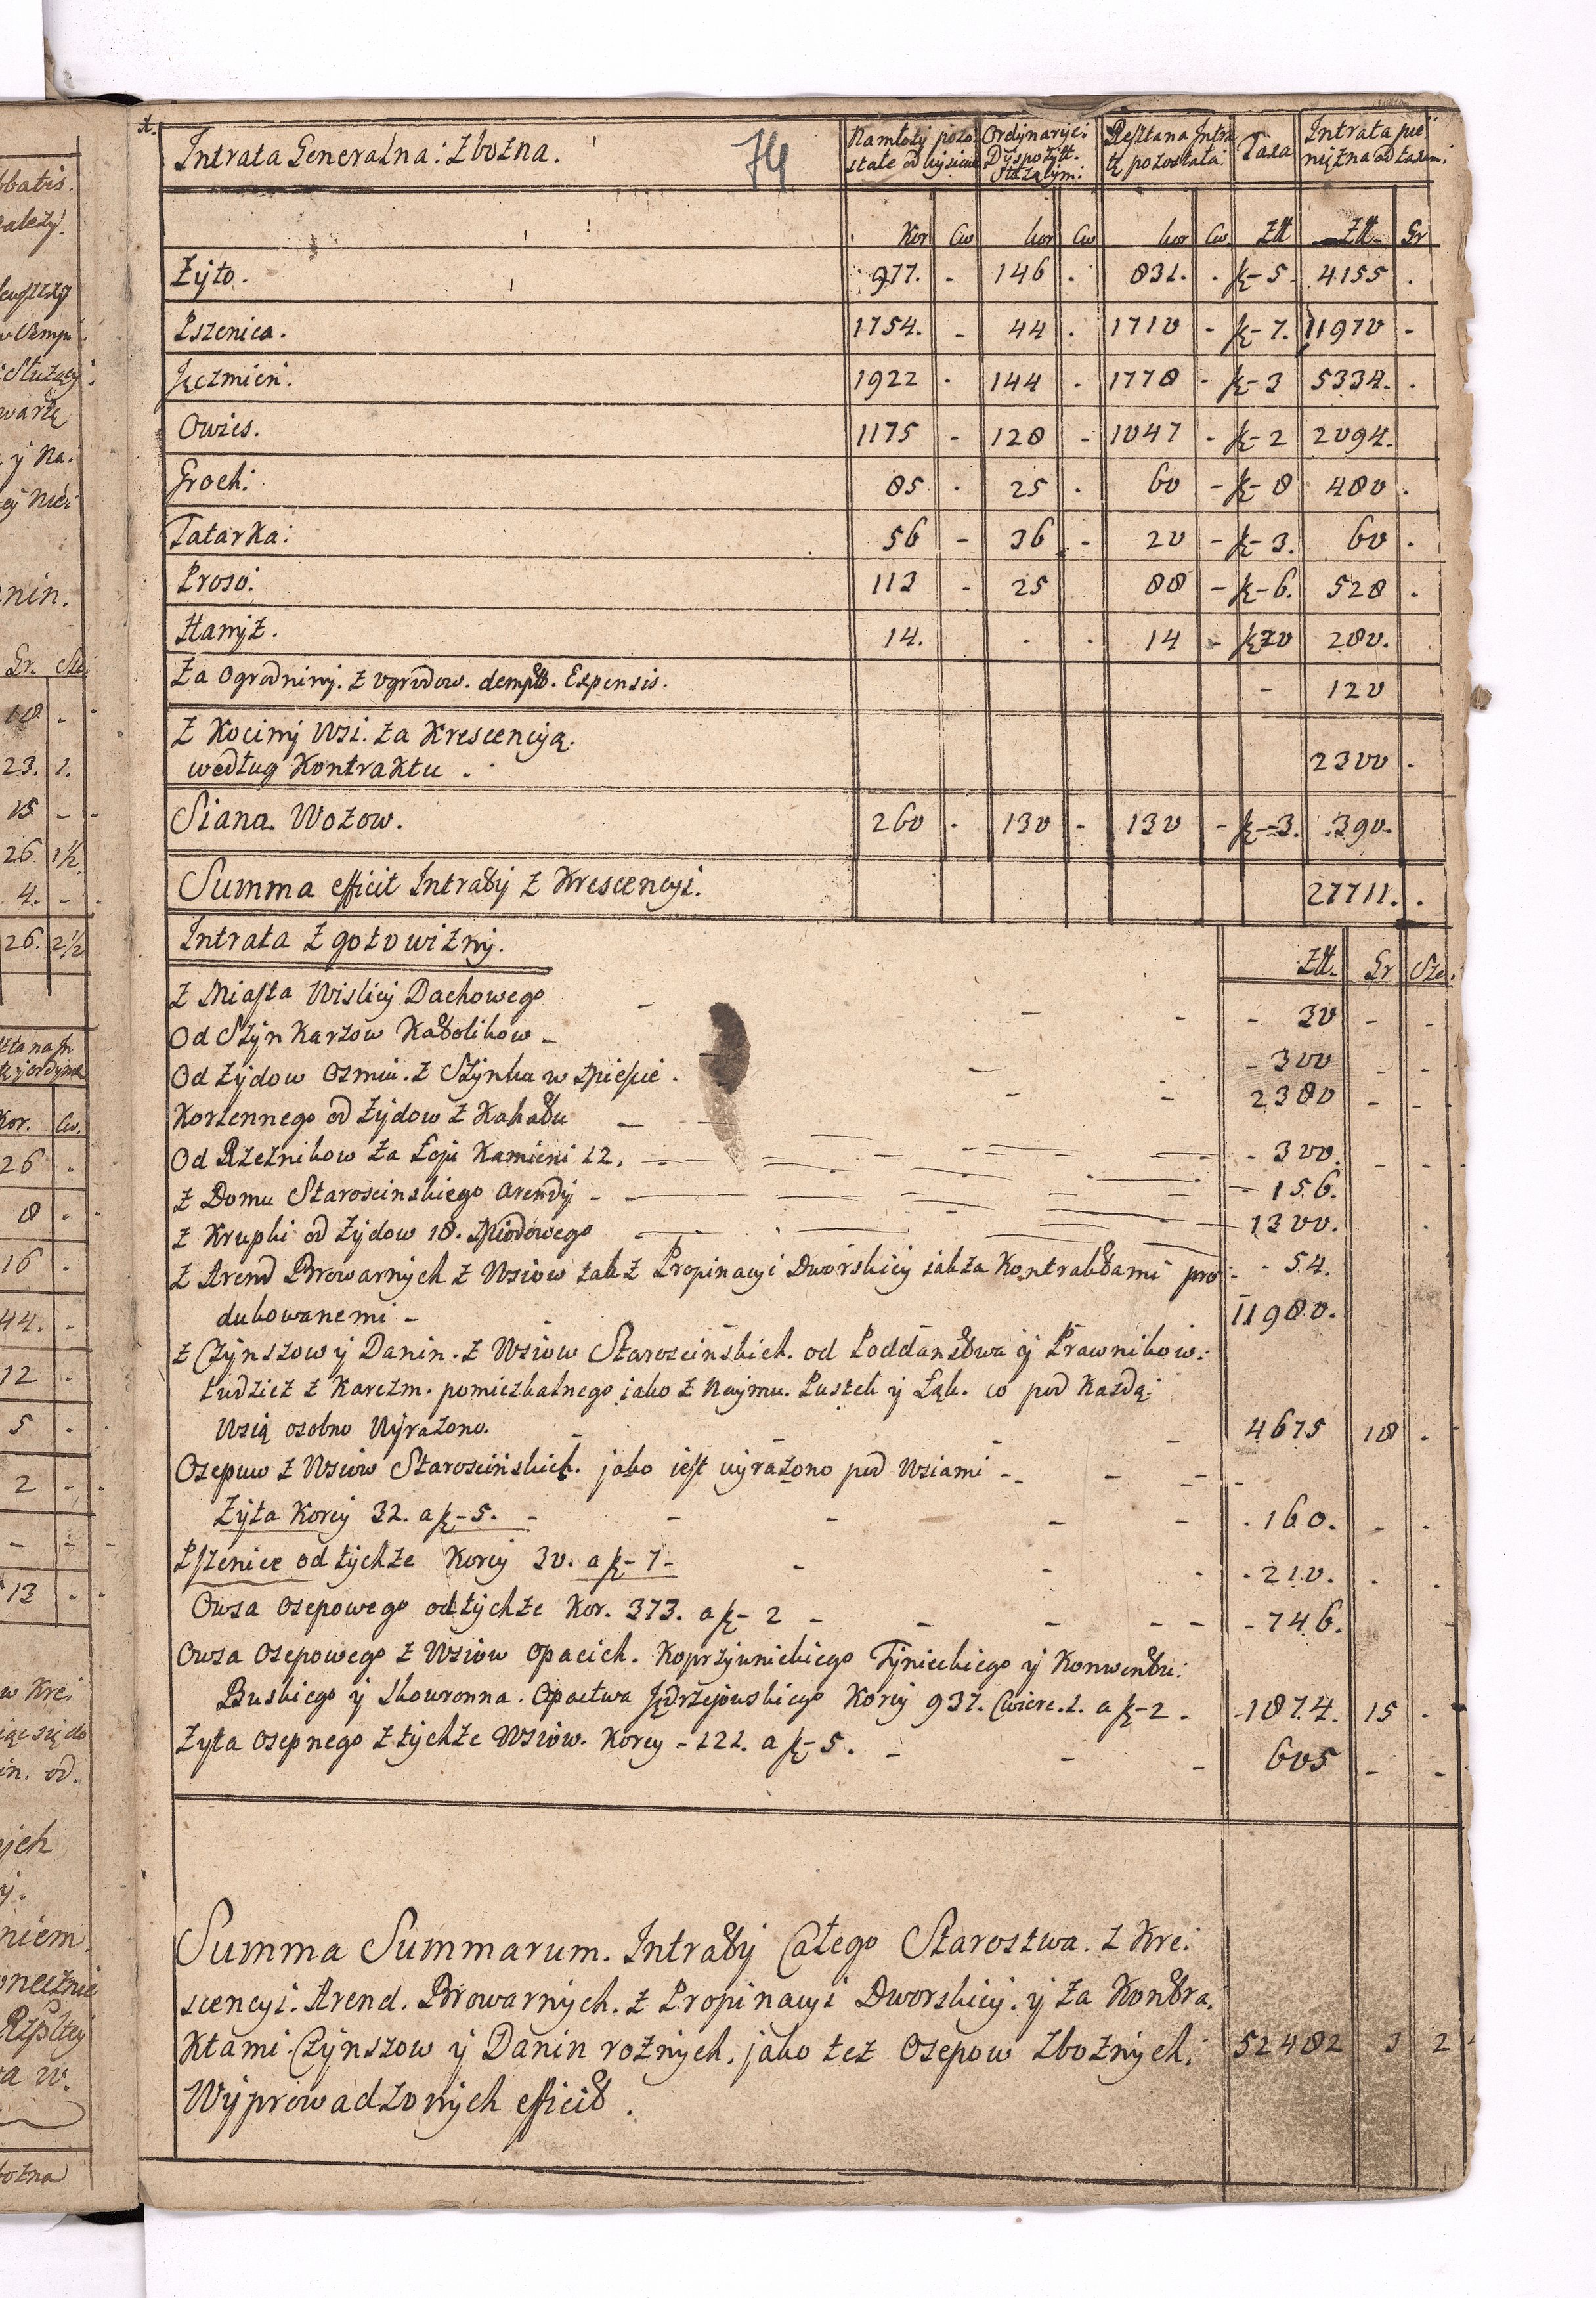 Intrata Generalna: Zbożna. 74 Namłoty pozo: Ordynaryei: Resztana Intra Taxa Intrata pie
stałe od wysiewu Dyspozyt. tę pozostała: niężna od taxow:
Służącym:
Kor Cw kor Cw kor Cw Złł Złł. Gr
Żyto. 977. - 146 . 831. . fl-5. 4155 .
Pszenica. 1754. - 44 . 1710 - fl-7. 11970 -
Jęczmień. 1922 . 144 . 1778 - fl-3 5334. .
Owies. 1175 - 128 - 1047 - fl-2 2094.
Groch: 85 . 25 . 60 - fl-8 480 .
Tatarka: 56 - 36 . 20 - fl-3. 60 .
Proso: 113 - 25 88 - fl-6. 528 .
Hanyż. 14. . . 14 - fl 20 280.
Za Ogrodniny. z ogrodow. dempt. Expensis. - 120
Z Kociny Wsi. za Krescencyą.
według Kontraktu . 2300 .
Siana. Wozow. 260 . 130 . 130 - fl-3. 390.
Summa efficit Intraty z Krescencyi. 27711. .
Intrata z gotowizny. Złł. Gr Sze.
Z Miasta Wislicy Dachowego - - - - 30 - -
Od Szynkarzow Katolikow - - 300 - -
Od Żydow Ozmin. z Szynku w Mieście . - - 2380 - -
Korzennego od Żydow z Kahału - - 300. - -
Od Rzeźnikow za Łoju Kamieni 12. - 156.
Z Domu Staroscinskiego Arendy - 1300.
Z Krupki od Żydow 18. Miodowego - 54.
Z Arend Browarnych z Wsiow tak z Propinacyi Dworskiey iak za Kontraktami pro:
dukowanemi - 11980.
Z Czynszow y Danin. z Wsiow Staroscińskich. od Poddaństwa y Prawnikow:
tudzież z Karczm. pomieszkalnego jako z Naymu. Pustek y Łąk. co pod Każdą:
Wsią osobno Wyrażono. - - - 4675 18 .
Ozepuw z Wsiow Staroscińskich. jako jest wyrażono pod Wsiami - - - -
Żyta Korcy 32. a fl-5. - - - - - . 160. - -
Pszenice od tychże Korcy 30. a fl-7- - - . - 210. . .
Owsa Ozepowego od tychże Kor. 373. a fl-2 - - - - - - 746.
Owsa Ozepowego z Wsiow Opacich. Koprzywnickiego Tynieckiego y Konwentu:
Buskiego y Skowronna. Opactwa Jędrzejowskiego Korcy 937. Cwierc. 1. a fl-2. -1874. 15 .
Żyta Ozepnego z tychże Wsiow. Korcy - 121. a fl-5. - - - 605 - -
Summa Summarum. Intraty Całego Starostwa. z Kre:
scencyi. Arend. Browarnych. z Propinacyi Dworskiey. y za Kontra:
Ktami. Czynszow y Danin rożnych. jako też Ozepow Zbożnych: 52482 3 2
Wyprowadzonych efficit .